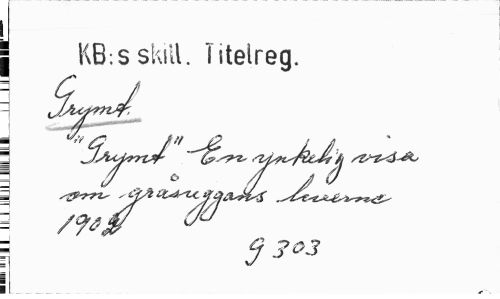 KB:s skill. Titelreg.
Grymt.
"Grymt" En ynkelig visa
om gråsuggans leverne
1902
G 303